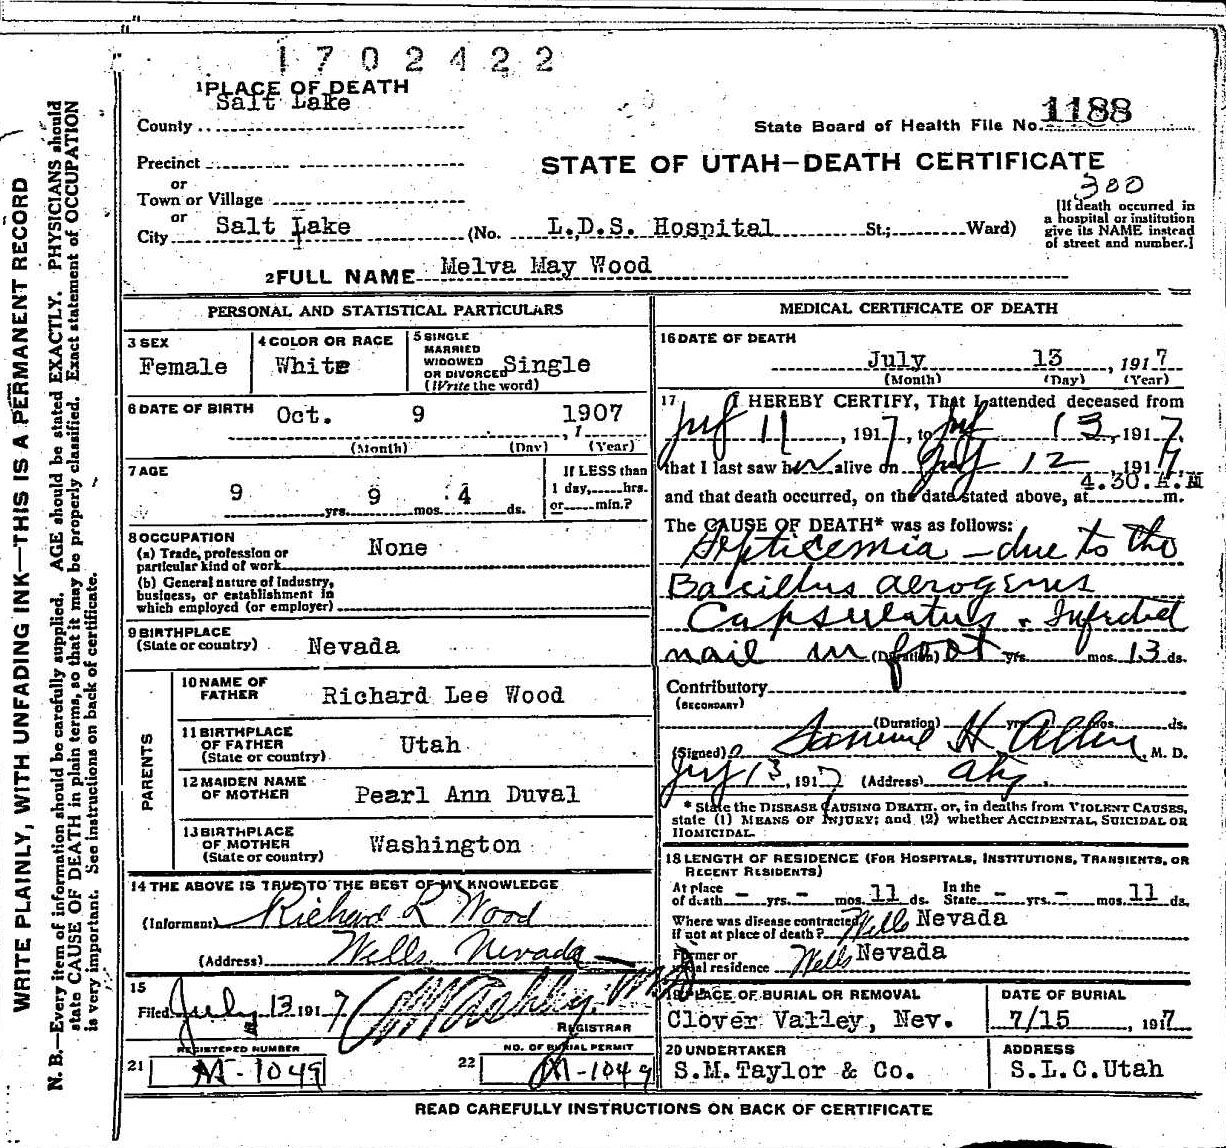 1702422
1 PLACE OF DEATH
Salt Lake
County
State Board of Health File No. 1188
Precinct
STATE OF UTAH—DEATH CERTIFICATE
or
Town or Village
300
or
City Salt Lake (No. L.D.S. Hospital St.; Ward)
[If death occurred in
a hospital or institution
give its NAME instead
of street and number.]
2 FULL NAME Melva May Wood
WRITE PLAINLY, WITH UNFADING INK—THIS IS A PERMANENT RECORD
N. B.—Every item of information should be carefully supplied. AGE should be stated EXACTLY. PHYSICIANS should
state CAUSE OF DEATH in plain terms, so that it may be properly classified. Exact statement of OCCUPATION
is very important. See instructions on back of certificate.
PERSONAL AND STATISTICAL PARTICULARS
3 SEX
Female
4 COLOR OR RACE
White
5 SINGLE
MARRIED
WIDOWED
OR DIVORCED Single
(Write the word)
6 DATE OF BIRTH Oct. 9 1907
, 1
(Month) (Day) (Year)
7 AGE
9 yrs. 9 mos. 4 ds.
If LESS than
1 day, hrs.
or min.?
8 OCCUPATION
(a) Trade, profession or
particular kind of work None
(b) General nature of industry,
business, or establishment in
which employed (or employer)
9 BIRTHPLACE
(State or country) Nevada
PARENTS
10 NAME OF
FATHER Richard Lee Wood
11 BIRTHPLACE
OF FATHER
(State or country) Utah
12 MAIDEN NAME
OF MOTHER Pearl Ann Duval
13 BIRTHPLACE
OF MOTHER
(State or country) Washington
14 THE ABOVE IS TRUE TO THE BEST OF MY KNOWLEDGE
(Informant) Richard L Wood
(Address) Wells Nevada
15
Filed July 13 1917
REGISTRAR
REGISTERED NUMBER
21 M-1049
NO. OF BURIAL PERMIT
22 M-1049
MEDICAL CERTIFICATE OF DEATH
16 DATE OF DEATH
July 13, 1917
(Month) (Day) (Year)
17 I HEREBY CERTIFY, That I attended deceased from
July 11, 1917, to July 13, 1917,
that I last saw her alive on July 12 1917
4.30.A.M
and that death occurred, on the date stated above, at m.
The CAUSE OF DEATH* was as follows:
Septicemia — due to the
Bacillus aerogenes
Capsulatus. Infected
nail in foot (Duration) yrs. mos. 13 ds.
Contributory
(SECONDARY)
(Duration) yrs. mos. ds.
(Signed) Samuel H Allen, M. D.
July 13, 1917 (Address) City.
* State the DISEASE CAUSING DEATH, or, in deaths from VIOLENT CAUSES,
state (1) MEANS OF INJURY; and (2) whether ACCIDENTAL, SUICIDAL OR
HOMICIDAL.
18 LENGTH OF RESIDENCE (FOR HOSPITALS, INSTITUTIONS, TRANSIENTS, OR
RECENT RESIDENTS)
At place
of death - yrs. - mos. 11 ds. In the
State - yrs. - mos. 11 ds.
Where was disease contracted,
if not at place of death? Wells Nevada
Former or
usual residence Wells Nevada
19 PLACE OF BURIAL OR REMOVAL
Clover Valley, Nev.
DATE OF BURIAL
7/15, 1917
20 UNDERTAKER
S.M.Taylor & Co.
ADDRESS
S.L.C.Utah
READ CAREFULLY INSTRUCTIONS ON BACK OF CERTIFICATE